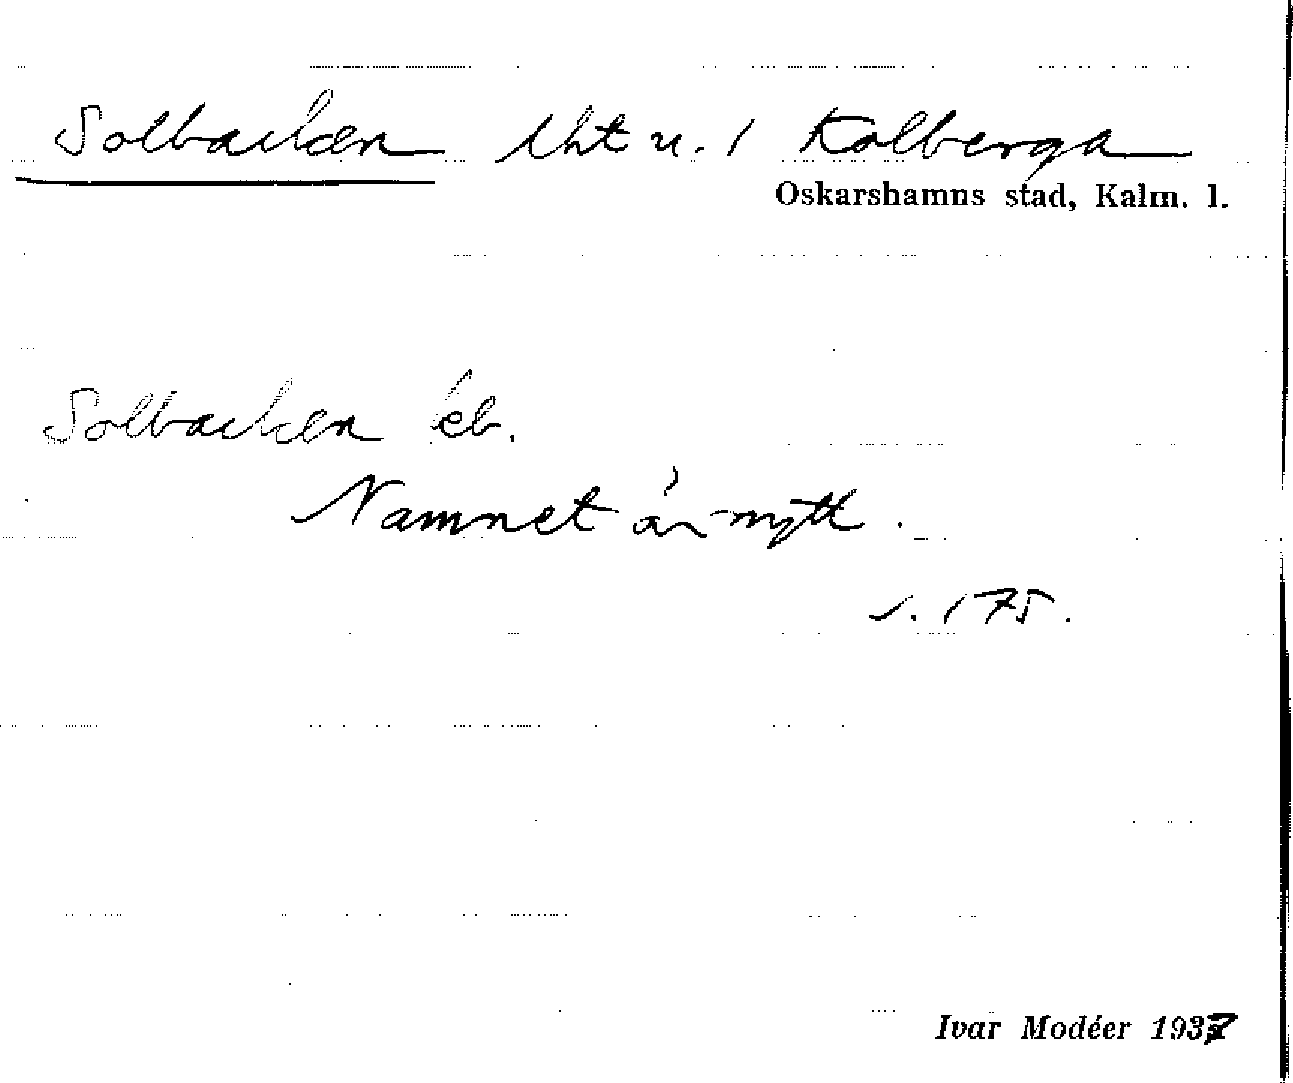 Solbacken lht u. 1 Kolberga
Oskarshamns stad, Kalm. l.
Solbacken eb.
Namnet är nytt.
s. 175.
Ivar Modéer 1937